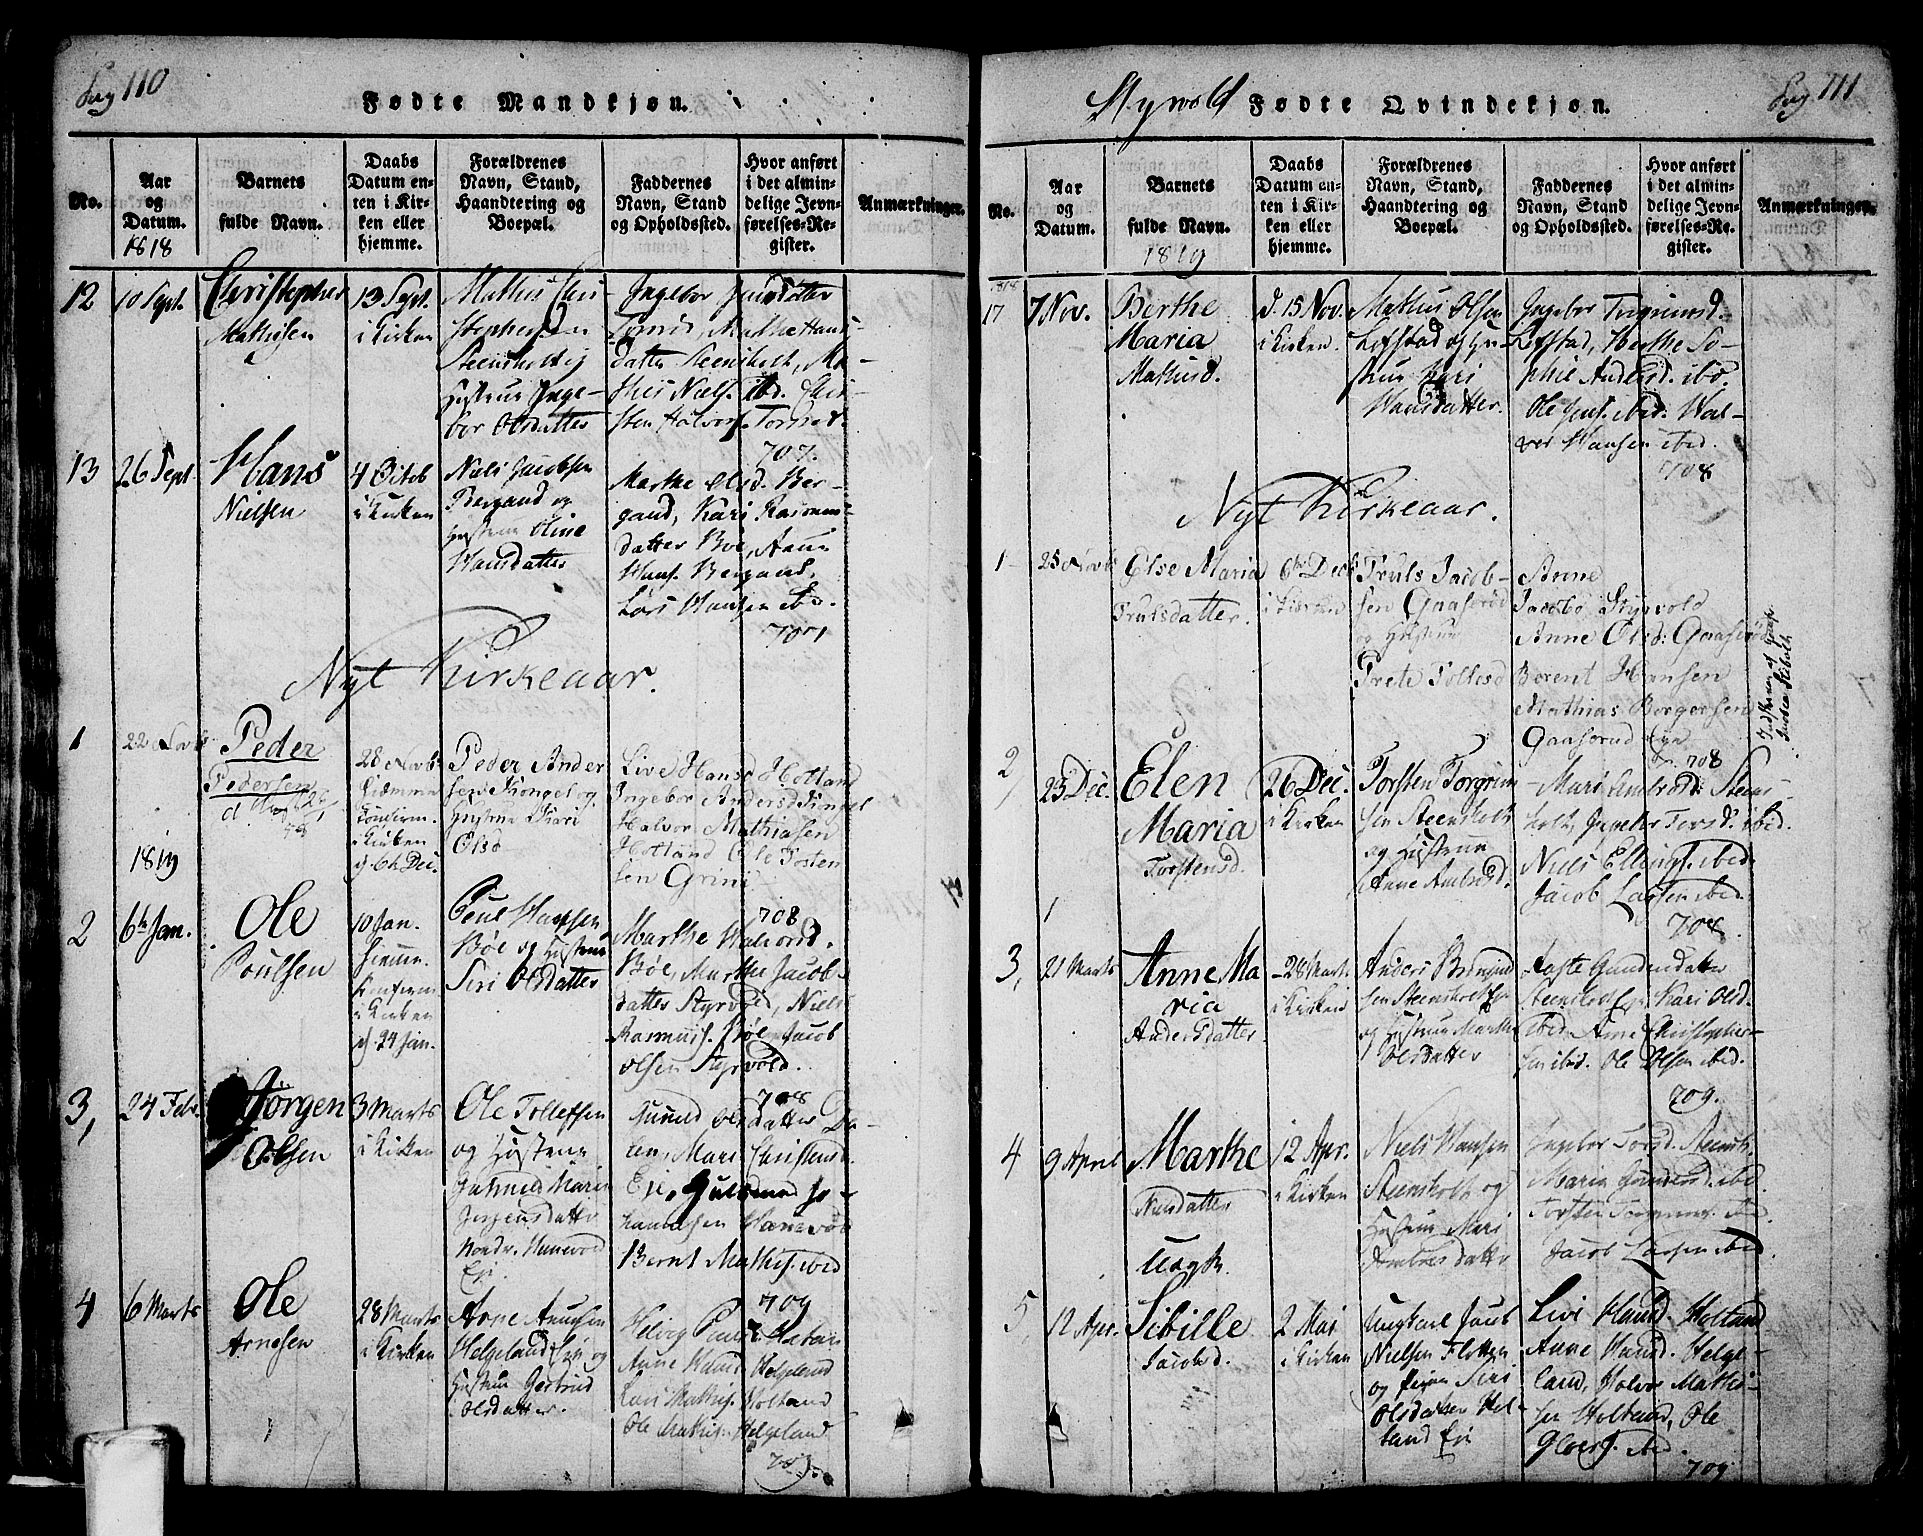 Pag 110
Fødte Mandkjøn.
No.
Aar
og
Datum.
1818
Barnets
fulde Navn.
Daabs
Datum en-
ten i Kir-
ken eller
hjemme.
Forældrenes
Navn, Stand,
Haandtering og
Boepæl.
Faddernes
Navn, Stand
og Opholdssted.
Hvor anført
i det almin-
delige Jevn-
førelses-Re-
gister.
Anmærkninger.
12
10 Sept.
Christopher
Mathisen
13 Sept.
i Kirken
Mathis Chri-
stophersen
Steensholt og
Hustrue Inge-
bor Olsdatter
Ingebor
Marthe Hans-
datter Steensholt, Ma-
this Niels. ibd. Chri-
sten Halvors.
707.
13
26 Sept.
Hans
Nielsen
4 Octob
i Kirken
Niels Jacobsen
Bergand og
Hustrue Oline
Hansdatter
Marthe Olsd. Ber-
gand, Kari Rasmus-
datter Boe, Anun
Hans. Bergand,
Lars Hansen ibd.
707
Nyt Kirkeaar.
1
22 Novb
Peder
Pedersen
28 Novb.
Hiemme
Confirm.
i Kirken
d. 6te Dec.
Peder Ander
sen Kongel og
Hustrue Kari
Olsd
Live Hansd Holland
Ingebor Andersd Kongel
Halvor Mathiasen
Holtand Ole Torsten
sen Grini
708
1819
2
6te Jan.
Ole
Poulsen
10 Jan.
hiemme.
Confirm
i Kirken
d. 24 Jan.
Poul Hansen
Bøe og Hustrue
Siri Olsdatter
Marthe Halvorsd.
Bøe, Marthe Jacobs-
datter Styrvold, Niels
Rasmuss. Bøe Jacob
Olsen Styrvold.
708
3,
24 Febr.
Jörgen
Olsen
3 Marts
i Kirken
Ole Tollefsen
og Hustrue
Maria
Jørgensdatter
Nordr. Hanevold
Eje.
Gunild Olsdatter Da-
len, Mari Christensd.
Eje, Guldmand Jo-
hannesen Hanevold
Bernt Mathis. ibid
709
4
6 Marts
Ole
Arnesen
28 Marts
i Kirken
Arne Anunsen
Helgeland Eje og
Hustrue Gertrud
Olsdatter.
Helvig
Anne Hansd Helgeland
Lars Mathis. Holtand
Ole Mathis. Helgeland
709.
Styrvold Fødte Qvindekjøn.
Pag 111
No.
Aar
og
Datum.
Barnets
fulde Navn.
1819
Daabs
Datum en-
ten i Kir-
ken eller
hjemme.
Forældrenes
Navn, Stand,
Haandtering og
Boepæl.
Faddernes
Navn, Stand
og Opholdssted.
Hvor anført
i det almin-
delige Jevn-
førelses-Re-
gister.
Anmærkninger.
1818
17
7 Nov.
Berthe
Maria
Mathisd.
d. 15 Nov.
i Kirken.
Mathis Olsen
Løfstad og Hu-
strue Kari
Hansdatter.
Ingebor Torgrimsd.
Løfstad, Berthe So-
phie Andersd. ibd.
Ole Jens. ibid. Hal-
vor Hansen ibid.
708
Nyt Kirkeaar.
1
25 Novb
Else Maria
Trulsdatter.
6te Decb
i Kierken
Truls Jacob-
sen Gaaserød
og Hustrue
Grete Tollesd
Anne
Jacobd Styrvold
Anne Olsd: Gaaserød
Berent Hansen
Mathias Borgersen
Gaaserud Eje
708
2
23 Dec.
Elen
Maria
Torstensd.
26 Dec.
i Kirken
Torsten Torgrim
sen Steensholt
og Hustrue
Anne Ambrosd.
Mari Ambrosd. Steens-
holt, Ingebor Torsd. ibid.
Niels Ellings. ibed.
Jacob Larsen ibed.
708.
3,
21 Marts
Anne Ma
ria
Andersdatter
28 Mart.
i Kirken
Anders Brynild
sen Steensholt Eje
og Hustrue Marthe
Olsdatter
Aaste Gundersdatter
Steensholt Eje, Kari Olsd.
ibid. Arne Christopher-
sen ibid. Ole Olsen ibed.
709.
4
9 April
Marthe
Nielsdatter
12 Apr.
i Kirken
Niels Hansen
Steensholt og
Hustrue Mari
Ambrosdatter
Ingebor Torsd. Steensh.
Maria Gundersd. ibid.
Torsten
Jacob Larsen ibid.
Uægte
5,
12 Apr.
Sibille
Jacobsd.
2 Mai
i Kirken
Ungkarl Jacob
Nielsen
og Pigen Siri
Olsdatter Hol-
tand Eje
Livi Hansd. Holtand
Anne Hansd. Helge-
land, Halvor Mathi-
sen Holtand, Ole
ibid.
709